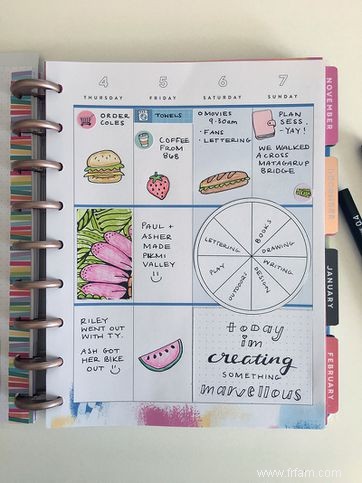 4
THURSDAY
5
FRIDAY
6
SATURDAY
7
SUNDAY
ORDER
COLES
TOWELS
COFFEE
FROM
868
MOVIES
9.30am
• FANS
• LETTERING
PLAN
SESS.
- YAY!
WE WALKED
ACROSS
MATAGARUP
BRIDGE
PAUL +
ASHER
MADE
PKMN
VALLEY
BOOKS
DRAWING
WRITING
DESIGN
OUTDOORS
PLAY
LETTERING
RILEY
WENT OUT
WITH TY.
ASH GOT
HER BIKE
OUT
today
im
creating
SOMETHING
marvellous
NOVEMBER
DECEMBER
JANUARY
FEBRUARY
www.frfam.com